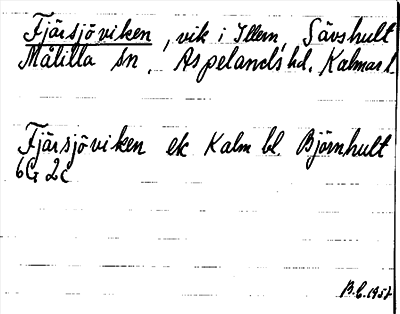 Fjärsjöviken, vik i Illern, Sävshult
Målilla sn, Aspelands hd, Kalmar l.
Fjärsjöviken ek Kalm bl Björnhult
6G 2c